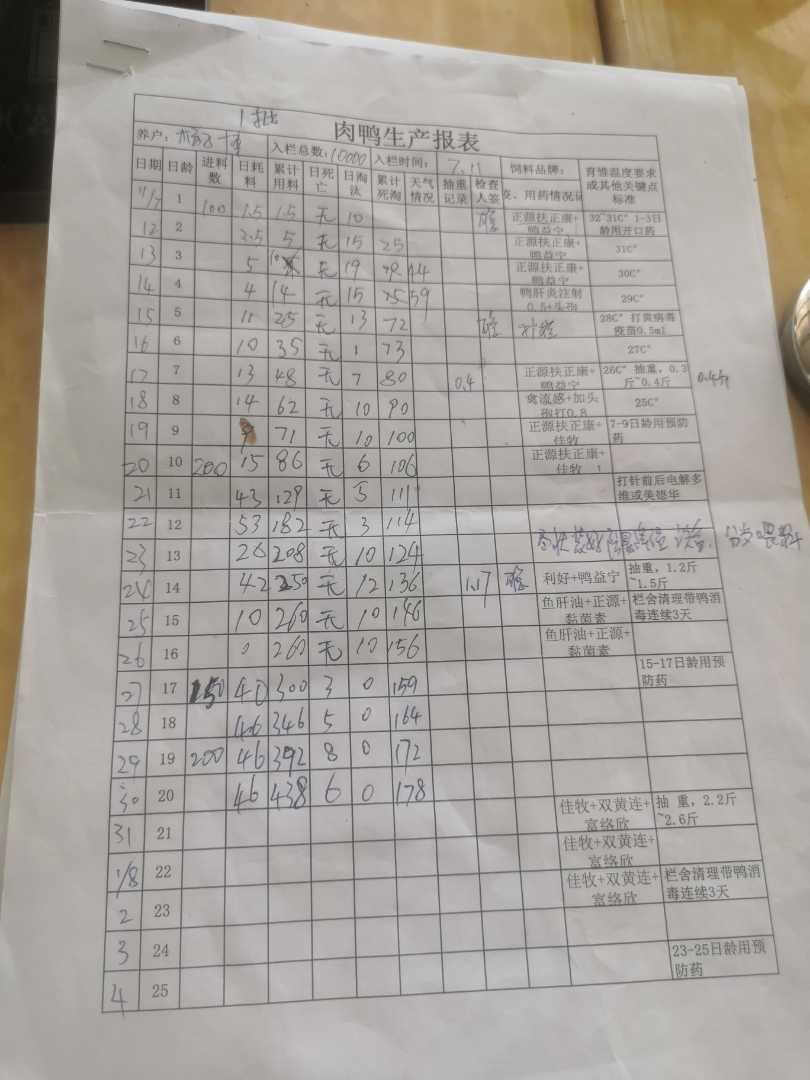 1批
肉鸭生产报表
养户： 入栏总数：10000 入栏时间： 7.11 饲料品牌：
日期 日龄 进料数 日耗料 累计用料 日死亡 日淘汰 累计死淘 天气情况 抽重记录 检查人签 用药情况记 育雏温度要求或其他关键点标准
11/7 1 100 1.5 1.5 无 10 正源扶正康+鸭益宁 32~31C° 1-3日龄用开口药
12 2 3.5 5 无 15 25 正源扶正康+鸭益宁 31C°
13 3 5 无 19 44 正源扶正康+鸭益宁 30C°
14 4 4 14 无 15 59 鸭肝炎注射0.5+头孢 29C°
15 5 11 25 无 13 72 28C° 打黄病毒疫苗0.5ml
16 6 10 35 无 1 73 27C°
17 7 13 48 无 7 80 0.4 正源扶正康+鸭益宁 26C° 抽重，0.3斤~0.4斤 0.4斤
18 8 14 62 无 10 90 禽流感+加头孢打0.8 25C°
19 9 9 71 无 10 100 正源扶正康+佳牧 7-9日龄用预防药
20 10 200 15 86 无 6 106 正源扶正康+佳牧
21 11 43 129 无 5 111 打针前后电解多维或美雄华
22 12 53 182 无 3 114
23 13 26 208 无 10 124
24 14 42 250 无 12 136 1.17 利好+鸭益宁 抽重，1.2斤~1.5斤
25 15 10 260 无 10 146 鱼肝油+正源+黏菌素 栏舍清理带鸭消毒连续3天
26 16 0 260 无 10 156 鱼肝油+正源+黏菌素
27 17 150 40 300 3 0 159 15-17日龄用预防药
28 18 46 346 5 0 164
29 19 200 46 392 8 0 172
30 20 46 438 6 0 178
31 21 佳牧+双黄连+富络欣 抽 重，2.2斤~2.6斤
1/8 22 佳牧+双黄连+富络欣
2 23 佳牧+双黄连+富络欣 栏舍清理带鸭消毒连续3天
3 24
4 25 23-25日龄用预防药